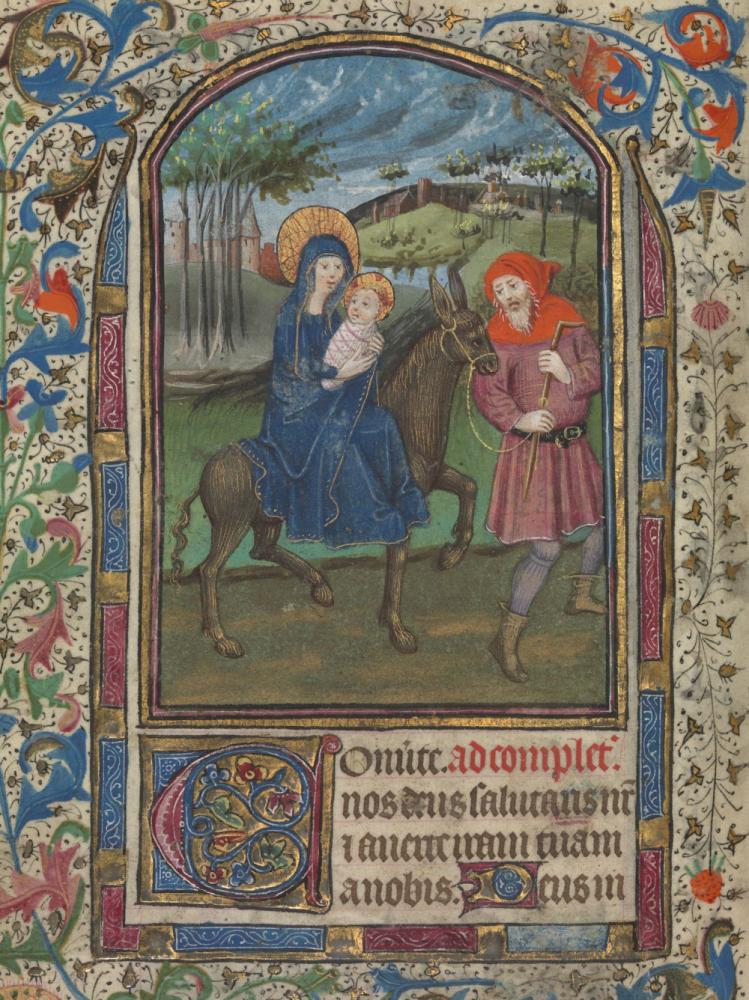 Conūte. ad complet.
nos deus salutaris nr̄
i auerte iram tuam
a nobis. Deus in